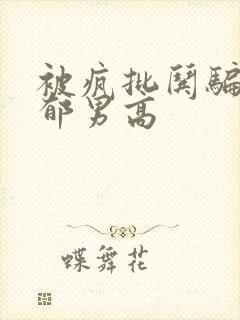 被疯批哭骗
郁男高
蝶舞花